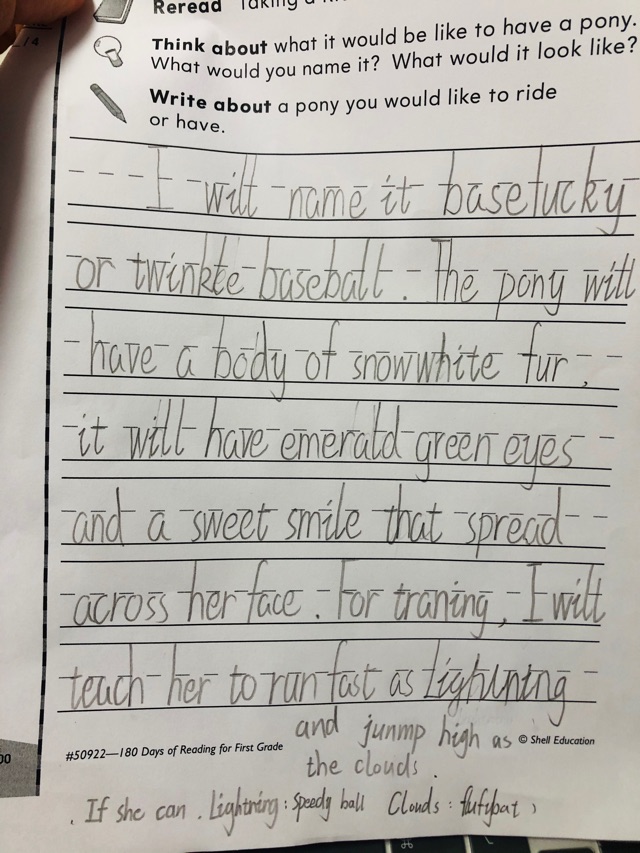 Reread
Think about what it would be like to have a pony.
What would you name it? What would it look like?
Write about a pony you would like to ride
or have.
I will name it baselucky
or twinkle baseball. The pony will
have a body of snowwhite fur,
it will have emerald green eyes
and a sweet smile that spread
across her face. For traning, I will
teach her to run fast as lightning
and junmp high as
the clouds.
#50922—180 Days of Reading for First Grade © Shell Education
If she can. Lightning: Speedy ball Clouds: flufybat